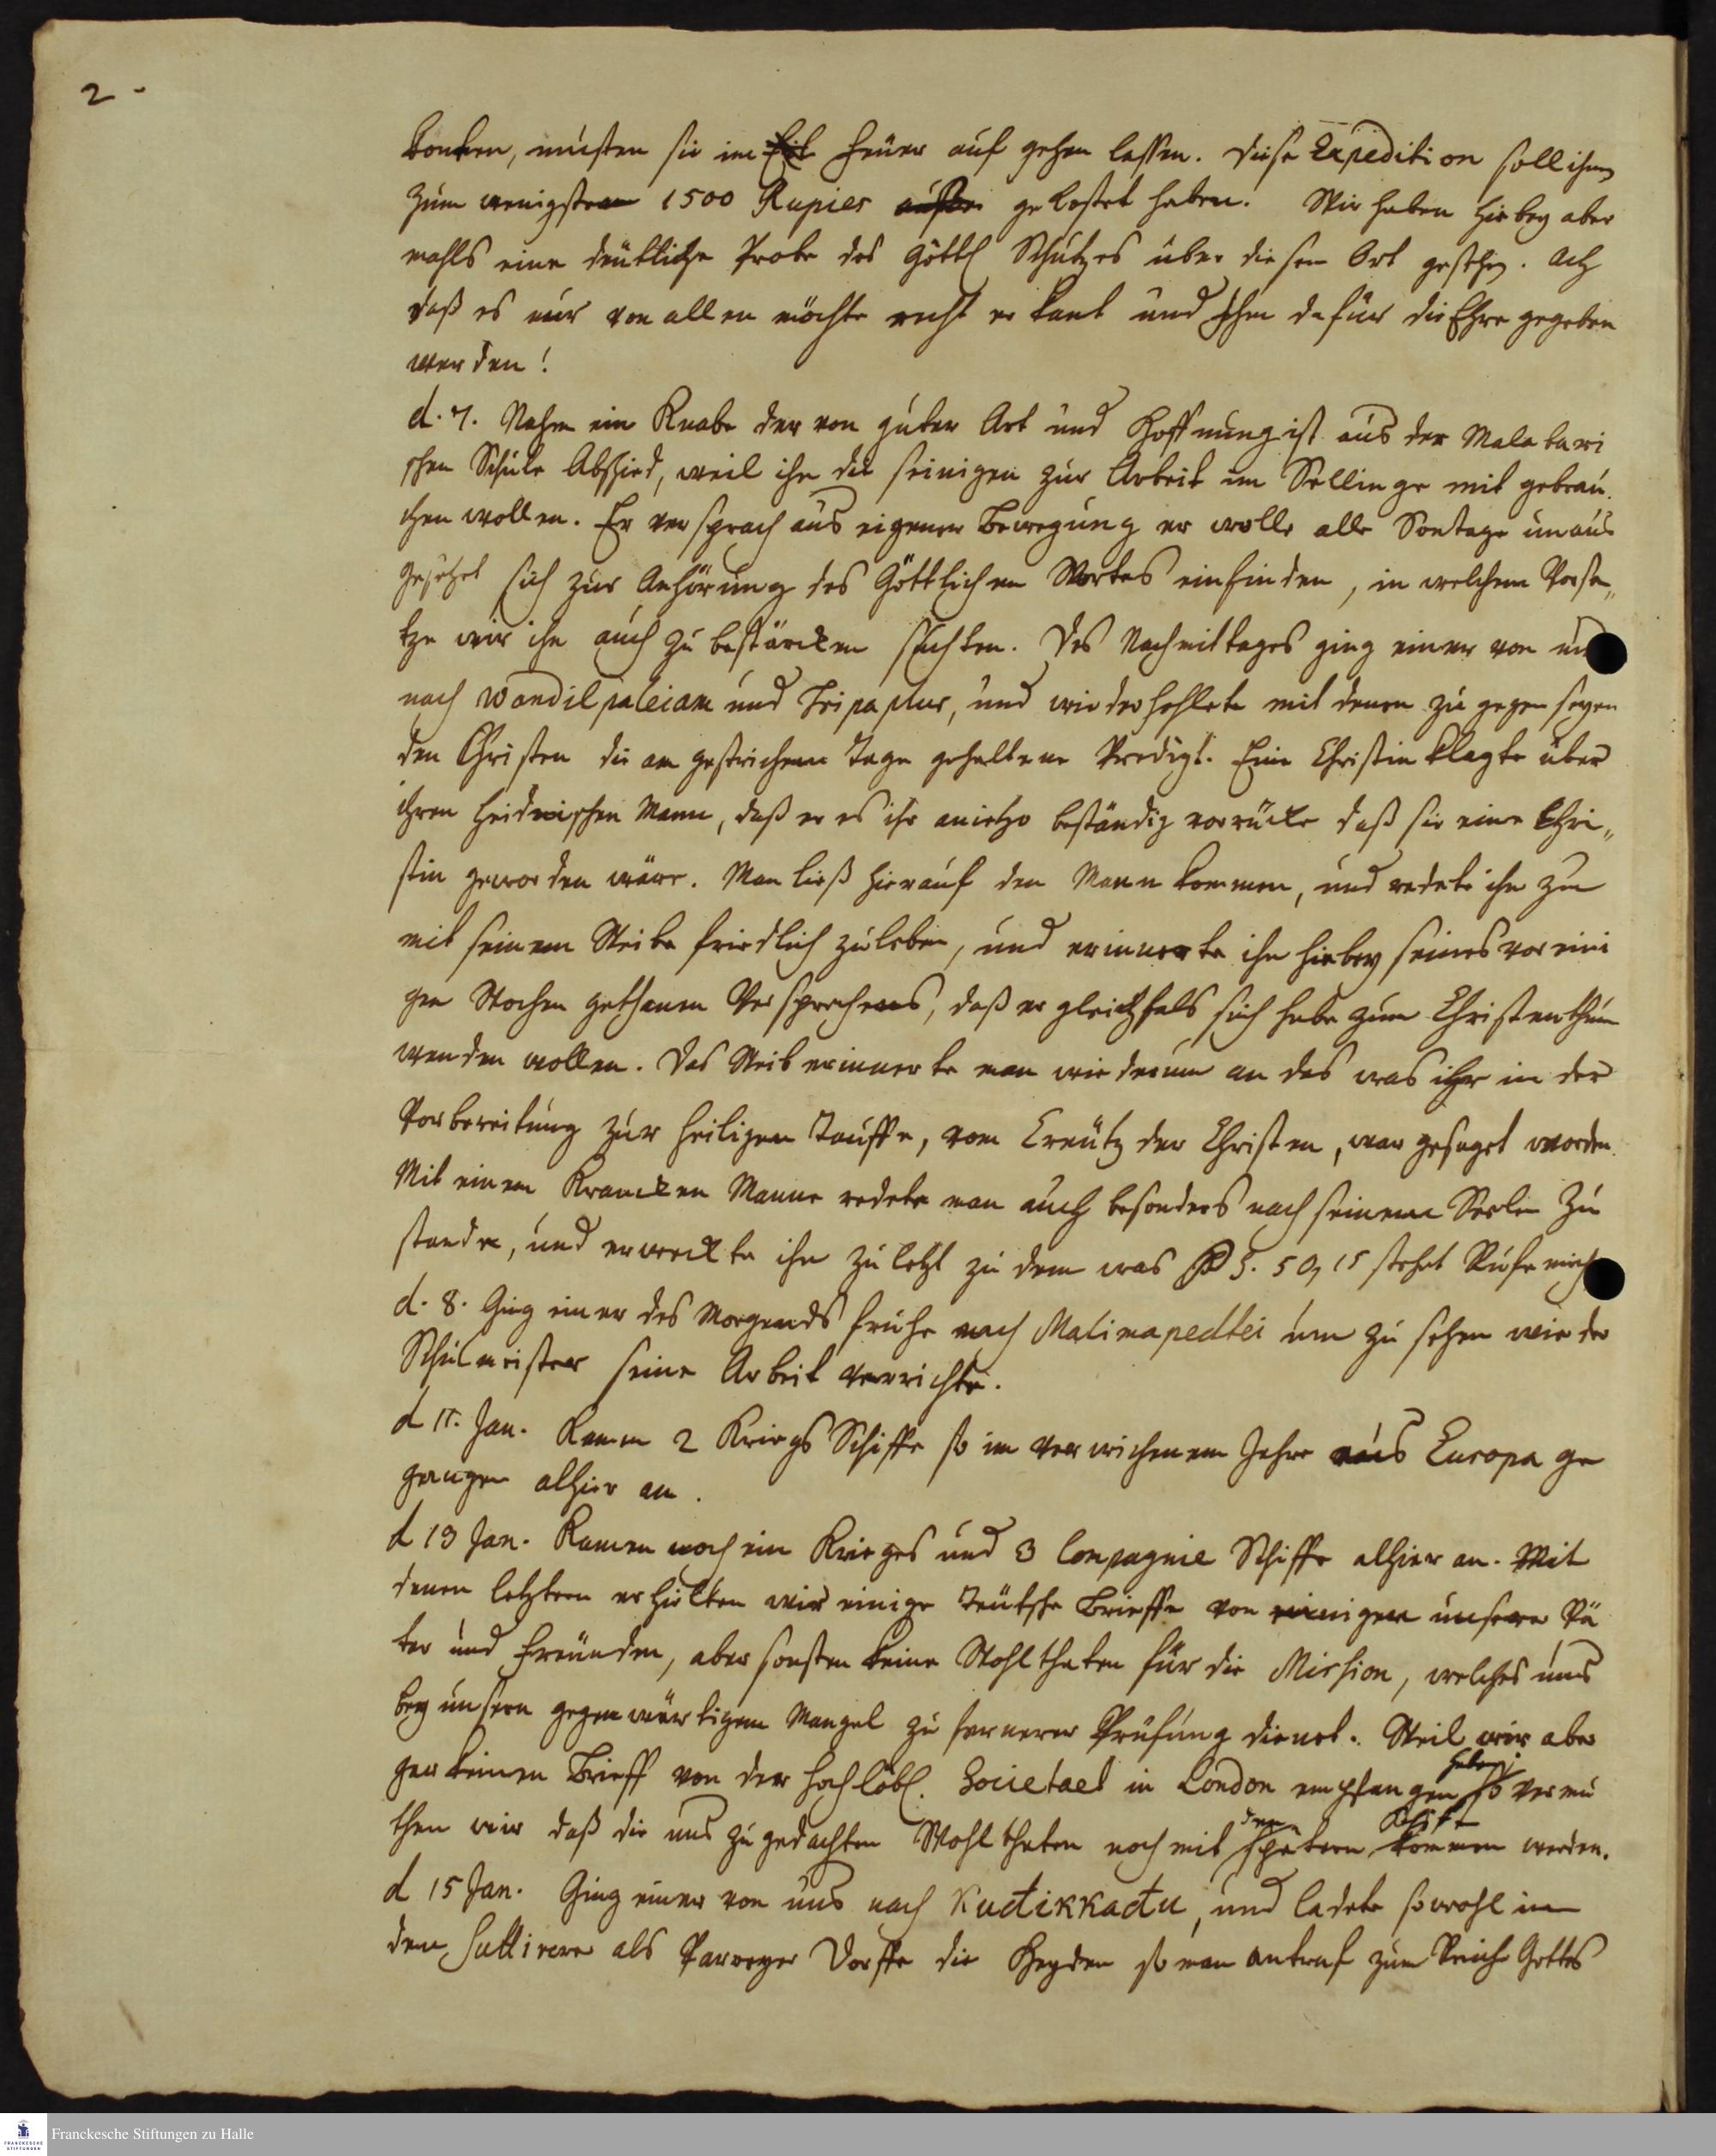 2 -
konten, musten sie im Feuer auf gehen lassen. Diese Expedition soll ihnen
zum wenigsten 1500 Rupies gekostet haben. Wir haben hiebey aber
mahls eine deutliche Probe des Göttl Schutzes über diesen Ort gesehen. Ach
daß es nur von allen möchte recht erkant und Ihm dafür die Ehre gegeben
werden!
d. 7. Nahm ein Knabe der von guter Art und Hoffnung ist aus der Malabari
schen Schule Abschied, weil ihn die seinigen zur Arbeit im mit gebrau
chen wollen. Er versprach aus eigener Bewegung er wolle alle Sontage unaus
gesetzet sich zur Anhörung des Göttlichen Wortes einfinden, in welchem Vorsa„
tze wir ihn auch zu bestärcken suchten. Des Nachmittages ging einer von uns
nach Wandilpaleiam und Tripaplur, und wiederhohlete mit denen zu gegen seyen
den Christen die am gestrichem Tage gehaltene Predigt. Eine Christin klagte über
ihren heidnischen Mann, daß er es ihr anietzo beständig vorrücke daß sie eine Chri„
stin geworden wäre. Man ließ hierauf den Mann kommen, und redete ihn zu
mit seinem Weibe friedlich zuleben, und erinnerte ihn hiebey seines vor eini
gen Wochen gethanen Versprechens, daß er gleichfals sich habe zum Christenthum
wenden wollen. Das Weib erinnerte man wiederum an das was ihr in der
Vorbereitung zur heiligen Tauffe, vom Creutz der Christen, war gesaget worden.
Mit einem Krancken Manne redete man auch besonders nach seinem Seelen Zu
stande, und erweckte ihn zuletzt zu dem was Ps. 50, 15 stehet Rufe mich
d. 8. Ging einer des Morgends frühe nach Malimapedtei um zu sehen wie der
Schulmeister seine Arbeit verrichte.
d 11. Jan. Kamen 2 Kriegs Schiffe so im verwichenem Jahre aus Europa ge
gangen alhier an.
d 13 Jan. Kamen noch ein Krieges und 3 Compagnie Schiffe alhier an. Mit
denen letztern erhielten wir einige Teutsche Brieffe von einigen unserer Vä
ter und Freunden, aber sonsten keine Wohlthaten für die Mission, welches uns
bey unsern gegenwärtigem Mangel zu fernerer Prüfung dienet. Weil wir aber
gar keinen Brieff von der hochlöbl. Societaet in London empfangen haben, so vermu
then wir daß die uns zugedachten Wohlthaten noch mit den spätern Schiff kommen werden.
d 15 Jan. Ging einer von uns nach Kudikkadu, und ladete sowohl in
dem Suttirer als Parreyer Dorffe die Heyden so man antraf zum Reiche Gottes
Franckesche Stiftungen zu Halle